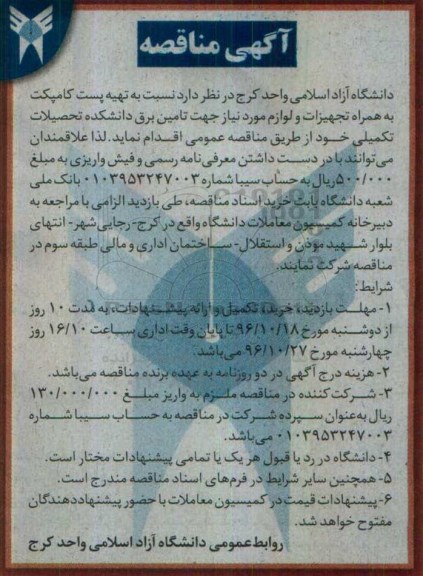 آگهی مناقصه
دانشگاه آزاد اسلامی واحد کرج در نظر دارد نسبت به تهیه پست کامپکت
به همراه تجهیزات و لوازم مورد نیاز جهت تامین برق دانشکده تحصیلات
تکمیلی خود از طریق مناقصه عمومی اقدام نماید. لذا علاقمندان
می‌توانند با در دست داشتن معرفی‌نامه رسمی و فیش واریزی به مبلغ
۵۰۰/۰۰۰ ریال به حساب سیبا شماره ۰۱۰۳۹۵۳۲۴۷۰۰۳ بانک ملی
شعبه دانشگاه بابت خرید اسناد مناقصه، طی بازدید الزامی با مراجعه به
دبیرخانه کمیسیون معاملات دانشگاه واقع در کرج- رجایی شهر- انتهای
بلوار شهید موذن و استقلال- ساختمان اداری و مالی طبقه سوم در
مناقصه شرکت نمایند.
شرایط:
۱- مهلت بازدید، خرید، تکمیل و ارائه پیشنهادات، به مدت ۱۰ روز
از دوشنبه مورخ ۹۶/۱۰/۱۸ تا پایان وقت اداری ساعت ۱۶/۱۰ روز
چهارشنبه مورخ ۹۶/۱۰/۲۷ می‌باشد.
۲- هزینه درج آگهی در دو روزنامه به عهده برنده مناقصه می‌باشد.
۳- شرکت کننده در مناقصه ملزم به واریز مبلغ ۱۳۰/۰۰۰/۰۰۰
ریال به‌عنوان سپرده شرکت در مناقصه به حساب سیبا شماره
۰۱۰۳۹۵۳۲۴۷۰۰۳ می‌باشد.
۴- دانشگاه در رد یا قبول هر یک یا تمامی پیشنهادات مختار است.
۵- همچنین سایر شرایط در فرم‌های اسناد مناقصه مندرج است.
۶- پیشنهادات قیمت در کمیسیون معاملات با حضور پیشنهاددهندگان
مفتوح خواهد شد.
روابط عمومی دانشگاه آزاد اسلامی واحد کرج